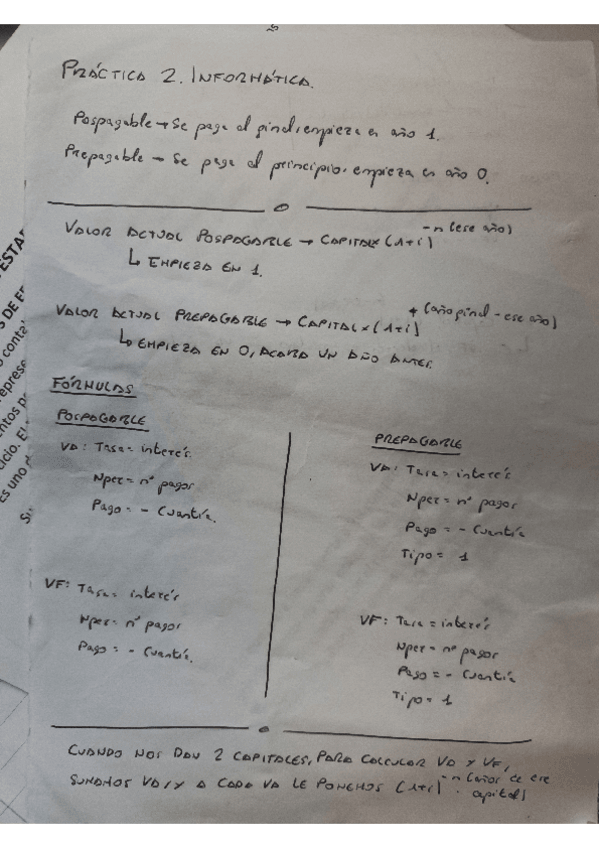 PRÁCTICA 2. INFORMÁTICA.
Pospagable → Se paga al final, empieza en año 1.
Prepagable → Se paga al principio, empieza en año 0.
VALOR ACTUAL POSPAGABLE → CAPITAL x (1+i)^-n (ese año)
↳ EMPIEZA EN 1.
VALOR ACTUAL PREPAGABLE → CAPITAL x (1+i)^+ (año final - ese año)
↳ EMPIEZA EN 0, ACABA UN AÑO ANTES.
FÓRMULAS
POSPAGABLE
VA: Tasa = interés
Nper = nº pagos
Pago = - Cuantía.
VF: Tasa = interés
Nper = nº pagos
Pago = - Cuantía.
PREPAGABLE
VA: Tasa = interés
Nper = nº pagos
Pago = - Cuantía
Tipo = 1
VF: Tasa = interés
Nper = nº pagos
Pago = - Cuantía
Tipo = 1
CUANDO NOS DAN 2 CAPITALES, PARA CALCULAR VA Y VF,
SUMAMOS VA, Y A CADA VA LE PONEMOS (1+i)^-n (años de ese capital)
ESTA
S DE E
conta
eprese
ntos p
cicio. El
es uno